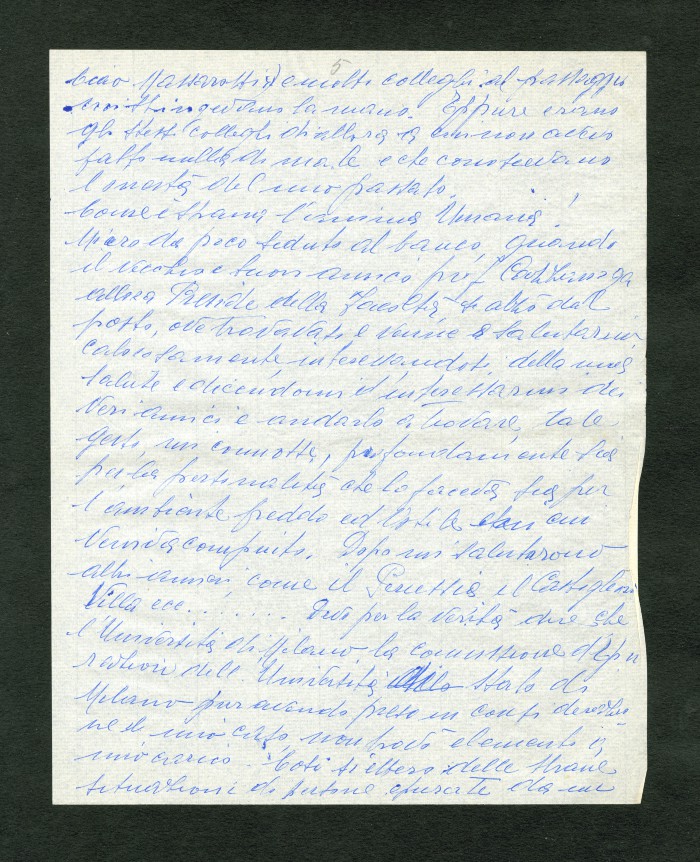 5
Ciao Massarotti) e molti colleghi al passaggio
mi stringevano la mano. Eppure erano
gli stessi colleghi di allora a cui non avevo
fatto nulla di male e che conoscevano
l'onestà del mio passato.
Come è strana l'anima Umana!
Mi ero da poco seduto al banco, quando
il vecchio e buon amico prof
allora Preside della Facoltà si alzò dal
posto, ove trovavasi e venne a salutarmi
calorosamente, interessandosi della mia
salute e dicendomi d'interessarmi dei
veri amici e andarlo a trovare, tale
gesto mi commosse, profondamente sia
per la personalità che lo faceva sia per
l'ambiente freddo ed ostile in cui
veniva compiuto. Dopo mi salutarono
altri amici, come il il
Villa ecc. . . . . . . . Devo per la verità dire che
l'Università di Milano la commissione d'epu
razione dell'Università dello Stato di
Milano pur avendo preso in
ne il mio caso non trovò elementi a
mio carico. Così si ebbero delle strane
situazioni di persone epurate da un